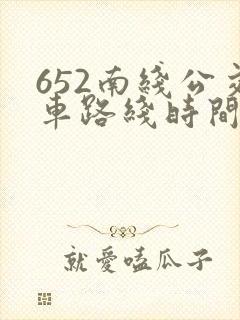 652南綫公交
車路綫時間
就愛嗑瓜子